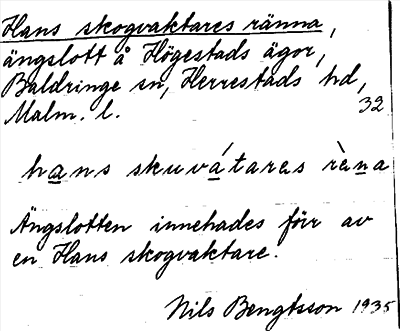 Hans skogvaktares ränna,
ängslott å Högestads ägor,
Baldringe sn, Herrestads hd,
Malm. l. 32
hans skuvátaras rèna
Ängslotten innehades förr av
en Hans skogvaktare.
Nils Bengtsson 1935